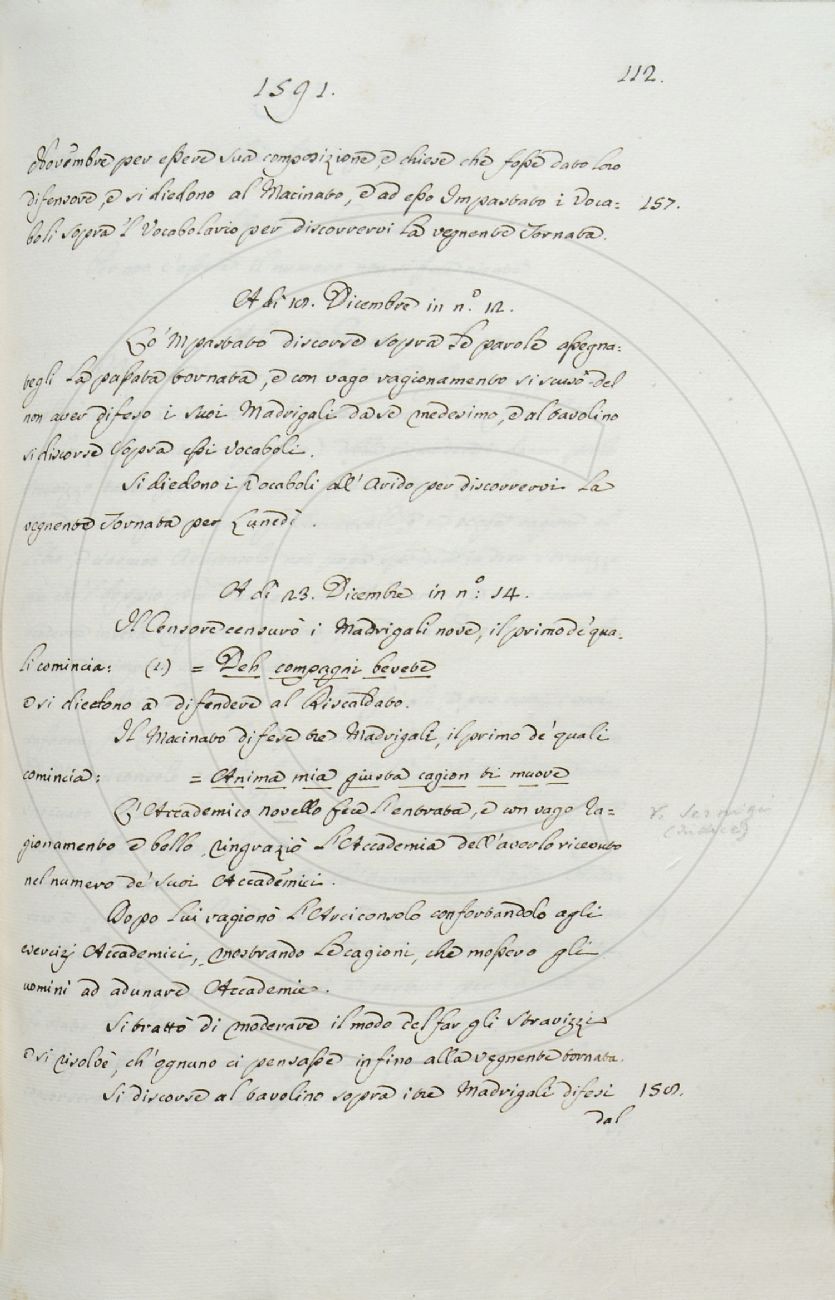 1591.
112.
Novembre per essere sua composizione, e chiese che fosse dato loro
difensore, e si diedono al Macinato, e ad esso Impastato i Voca=
157.
boli sopra 'l Vocabolario per discorrervi la vegnente Tornata.
A dì 18. Dicembre in n.º 12.
Lo 'Mpastato discorse sopra le parole assegna=
tegli la passata tornata, e con vago ragionamento si scusò del
non aver difeso i suoi Madrigali da se medesimo, e al tavolino
si discorse sopra essi Vocaboli.
Si diedono i Vocaboli all' Arido per discorrervi la
vegnente Tornata per Lunedì.
A dì 23. Dicembre in n.º 14.
Il Censore censurò i Madrigali nove, il primo de' qua=
li comincia: (1.) = Deh compagni bevete
e si diedono a difendere al Riscaldato.
Il Macinato difese tre Madrigali, il primo de' quali
comincia: = Anima mia giusta cagion ti muove
L' Accademico novello fece l' entrata, e con vago ra=
gionamento e bello ringraziò l' Accademia dell' averlo ricevuto
nel numero de' suoi Accademici.
Dopo lui ragionò l' Arciconsolo confortandolo agli
esercizj Accademici, mostrando le cagioni, che mossero gli
uomini ad adunare Accademie.
Si trattò di moderare il modo del far gli stravizzi
e si risolvè, ch' ognuno ci pensasse infino alla vegnente tornata.
Si discorse al tavolino sopra i tre Madrigali difesi
158.
dal